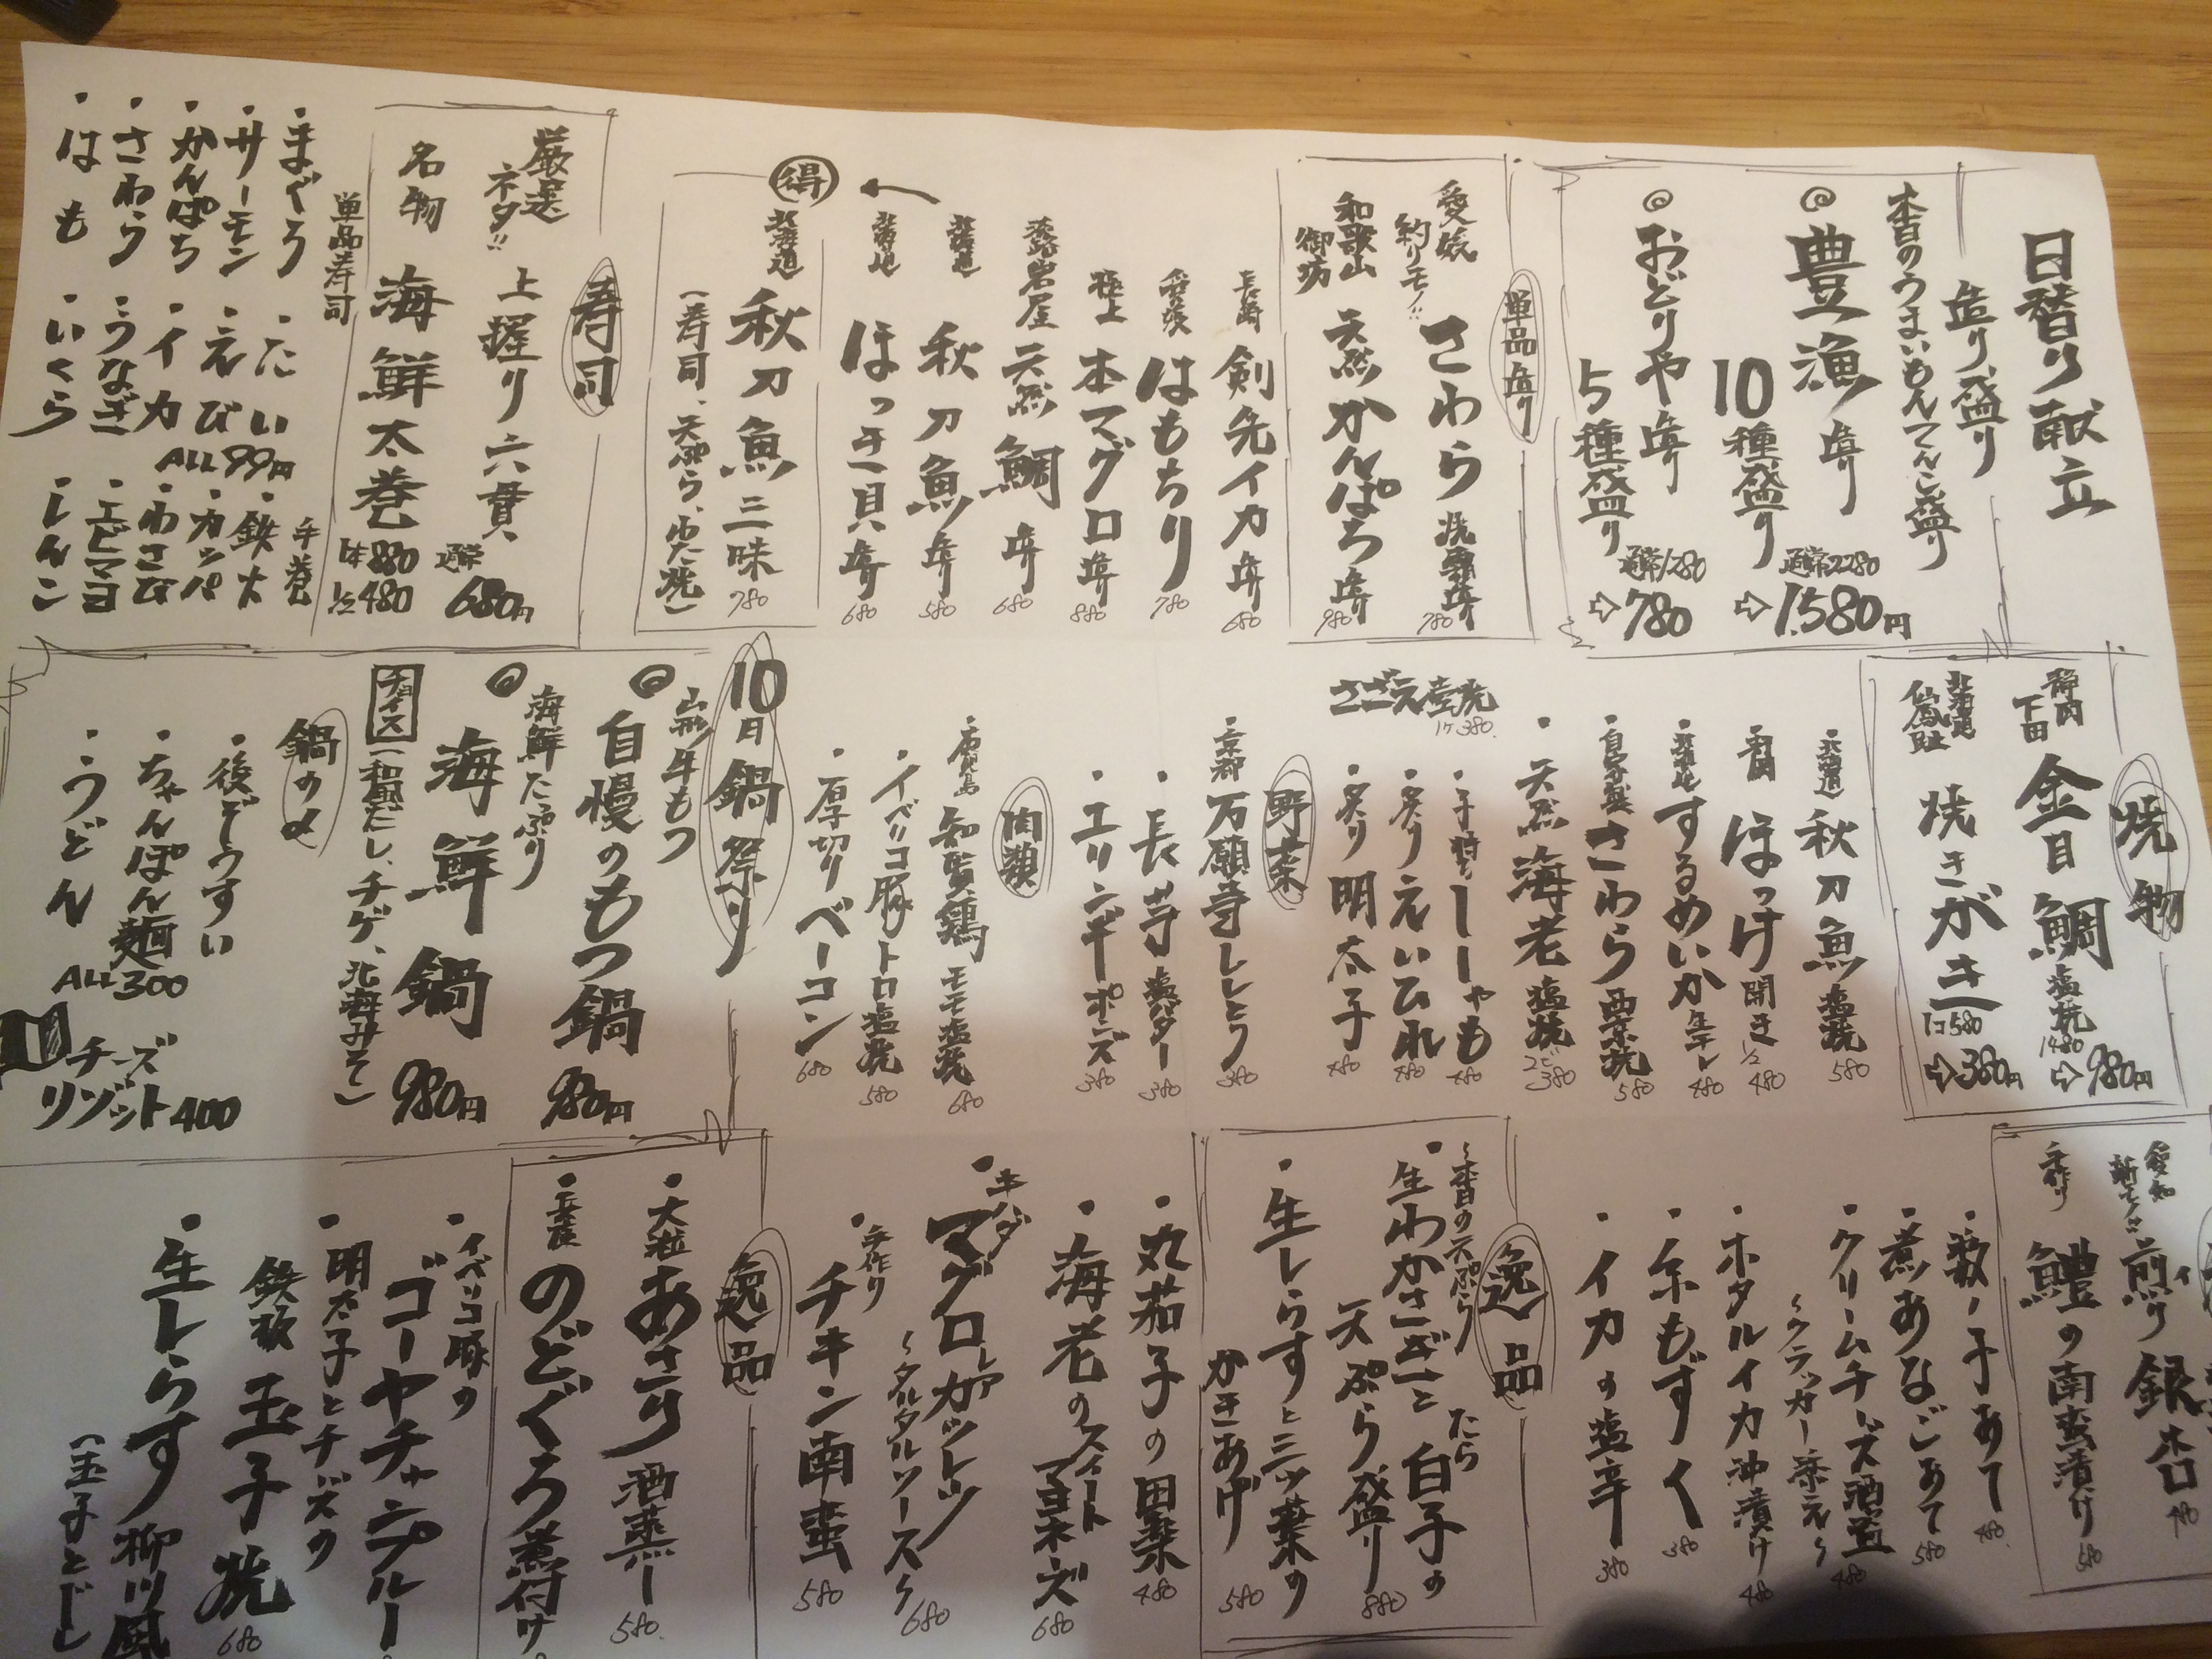 日替り献立
造り盛り
本日のうまいもんてんこ盛り
豊漁造り
10種盛り
通常2280
⇨1,580円
おどりや造り
5種盛り
通常1280
⇨780
単品造り
愛媛
釣りモノ!!
さわら 焼霜造り
780
和歌山
御坊
天然かんぱち造り
980
長崎
剣先イカ造り
680
はもちり
780
極上
本マグロ造り
880
淡路岩屋
天然鯛造り
680
北海道
秋刀魚造り
580
ほっき貝造り
680
得
北海道
秋刀魚三味
780
(寿司、天ぷら、塩焼)
寿司
厳選
ネタ!!
上握り六貫
通常
680円
名物
海鮮太巻
1本880
1/2 480
単品寿司
・まぐろ
・サーモン
・かんぱち
・さわら
・はも
・たい
・えび
・イカ
・うなぎ
・いくら
ALL 99円
手巻
・鉄火
・カッパ
・わさび
・エビマヨ
・しんこ
焼物
下田
金目鯛 塩焼
1480
⇨980円
北海道
仙鳳趾
焼きがき
1コ580
⇨380円
・北海道 秋刀魚 塩焼
580
ほっけ開き
1/2 480
するめいか
480
・自家製 さわら西京焼
580
・天然海老塩焼
2ピ 380
さざえ壺焼
1ケ380
・子持ちししゃも
480
・炙りえいひれ
480
・炙り明太子
480
野菜
・京都 万願寺ししとう
380
・長芋 塩バター
380
・エリンギポンズ
380
肉類
・鹿児島 知覧鶏 モモ塩焼
680
・イベリコ豚トロ塩焼
580
・厚切りベーコン
680
10日鍋祭り
牛もつ
自慢のもつ鍋
980円
海鮮たっぷり
海鮮鍋
980円
チョイス
(和風だし、チゲ、北海みそ)
鍋の〆
・後ぞうすい
・ちゃんぽん麺
・うどん
ALL 300
チーズ
リゾット400
愛知
新モノ!!
煎り銀杏
手作り
鱧の南蛮漬け
580
・数ノ子あて
480
・煮あなごあて
580
・クリームチーズ酒盗
〜クラッカー添え〜
480
・ホタルイカ沖漬け
480
・糸もずく
380
・イカの塩辛
380
逸品
〜本日の天ぷら
・生わかさぎと たら白子の
天ぷら盛り
880
・生しらすと三ツ葉の
かきあげ
580
・丸茄子の田楽
480
・海老のスイートマヨネーズ
680
・キハダ
マグロレアカツレツ
〜タルタルソース〜
680
・手作り
チキン南蛮
580
逸品
・大粒 あさり酒蒸し
580
・兵庫 のどぐろ煮付け
・イベリコ豚の
ゴーヤチャンプルー
・明太子とチーズの
鉄板玉子焼
680
・生しらす柳川風
(玉子とじ